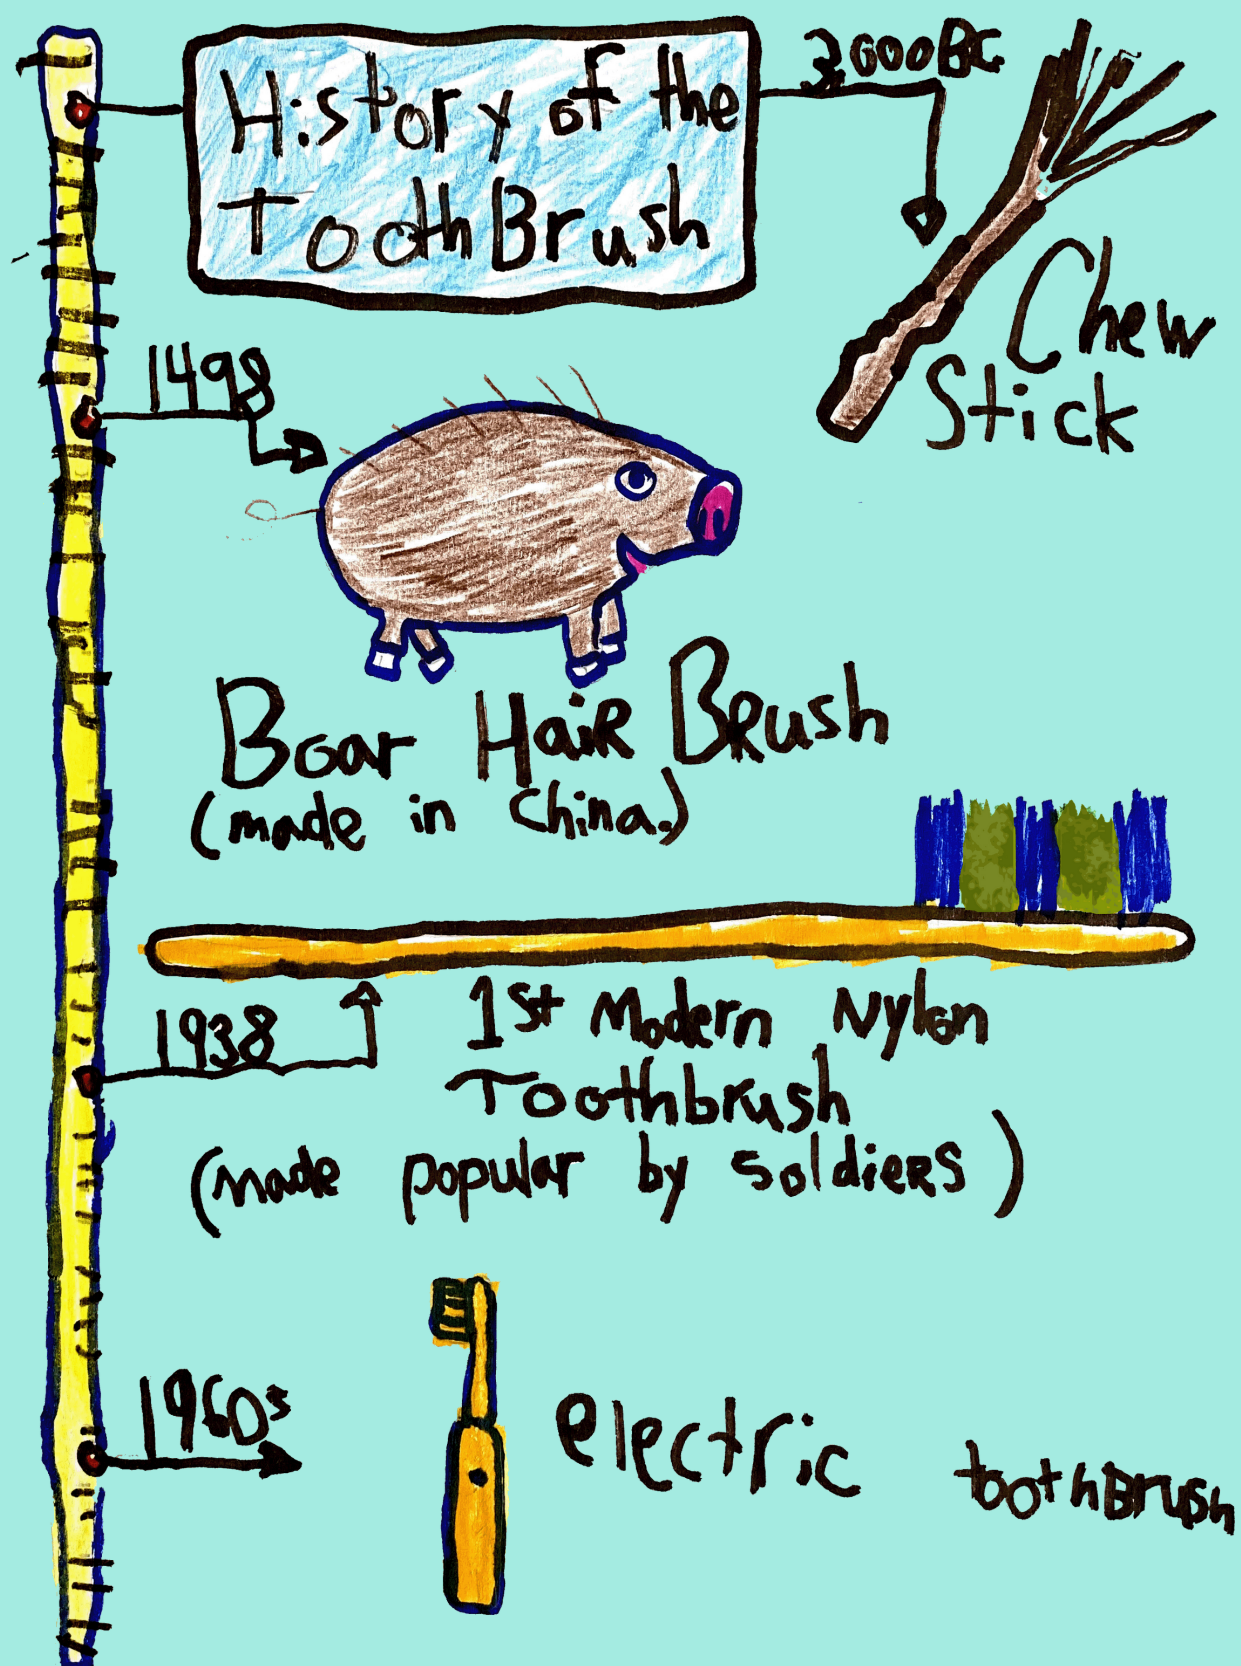 History of the
ToothBrush
3,000BC
Chew
Stick
1498
Boar HaiR BRush
(made in China.)
1938
1st Modern Nylon
Toothbrush
(made popular by SoldieRS)
1960s
electric toothBrush